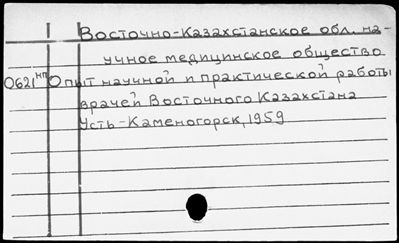 Восточно-Казахстанское обл. на-
учное медицинское общество
0621нп Опыт научной и практической работы
врачей Восточного Казахстана
Усть-Каменогорск, 1959